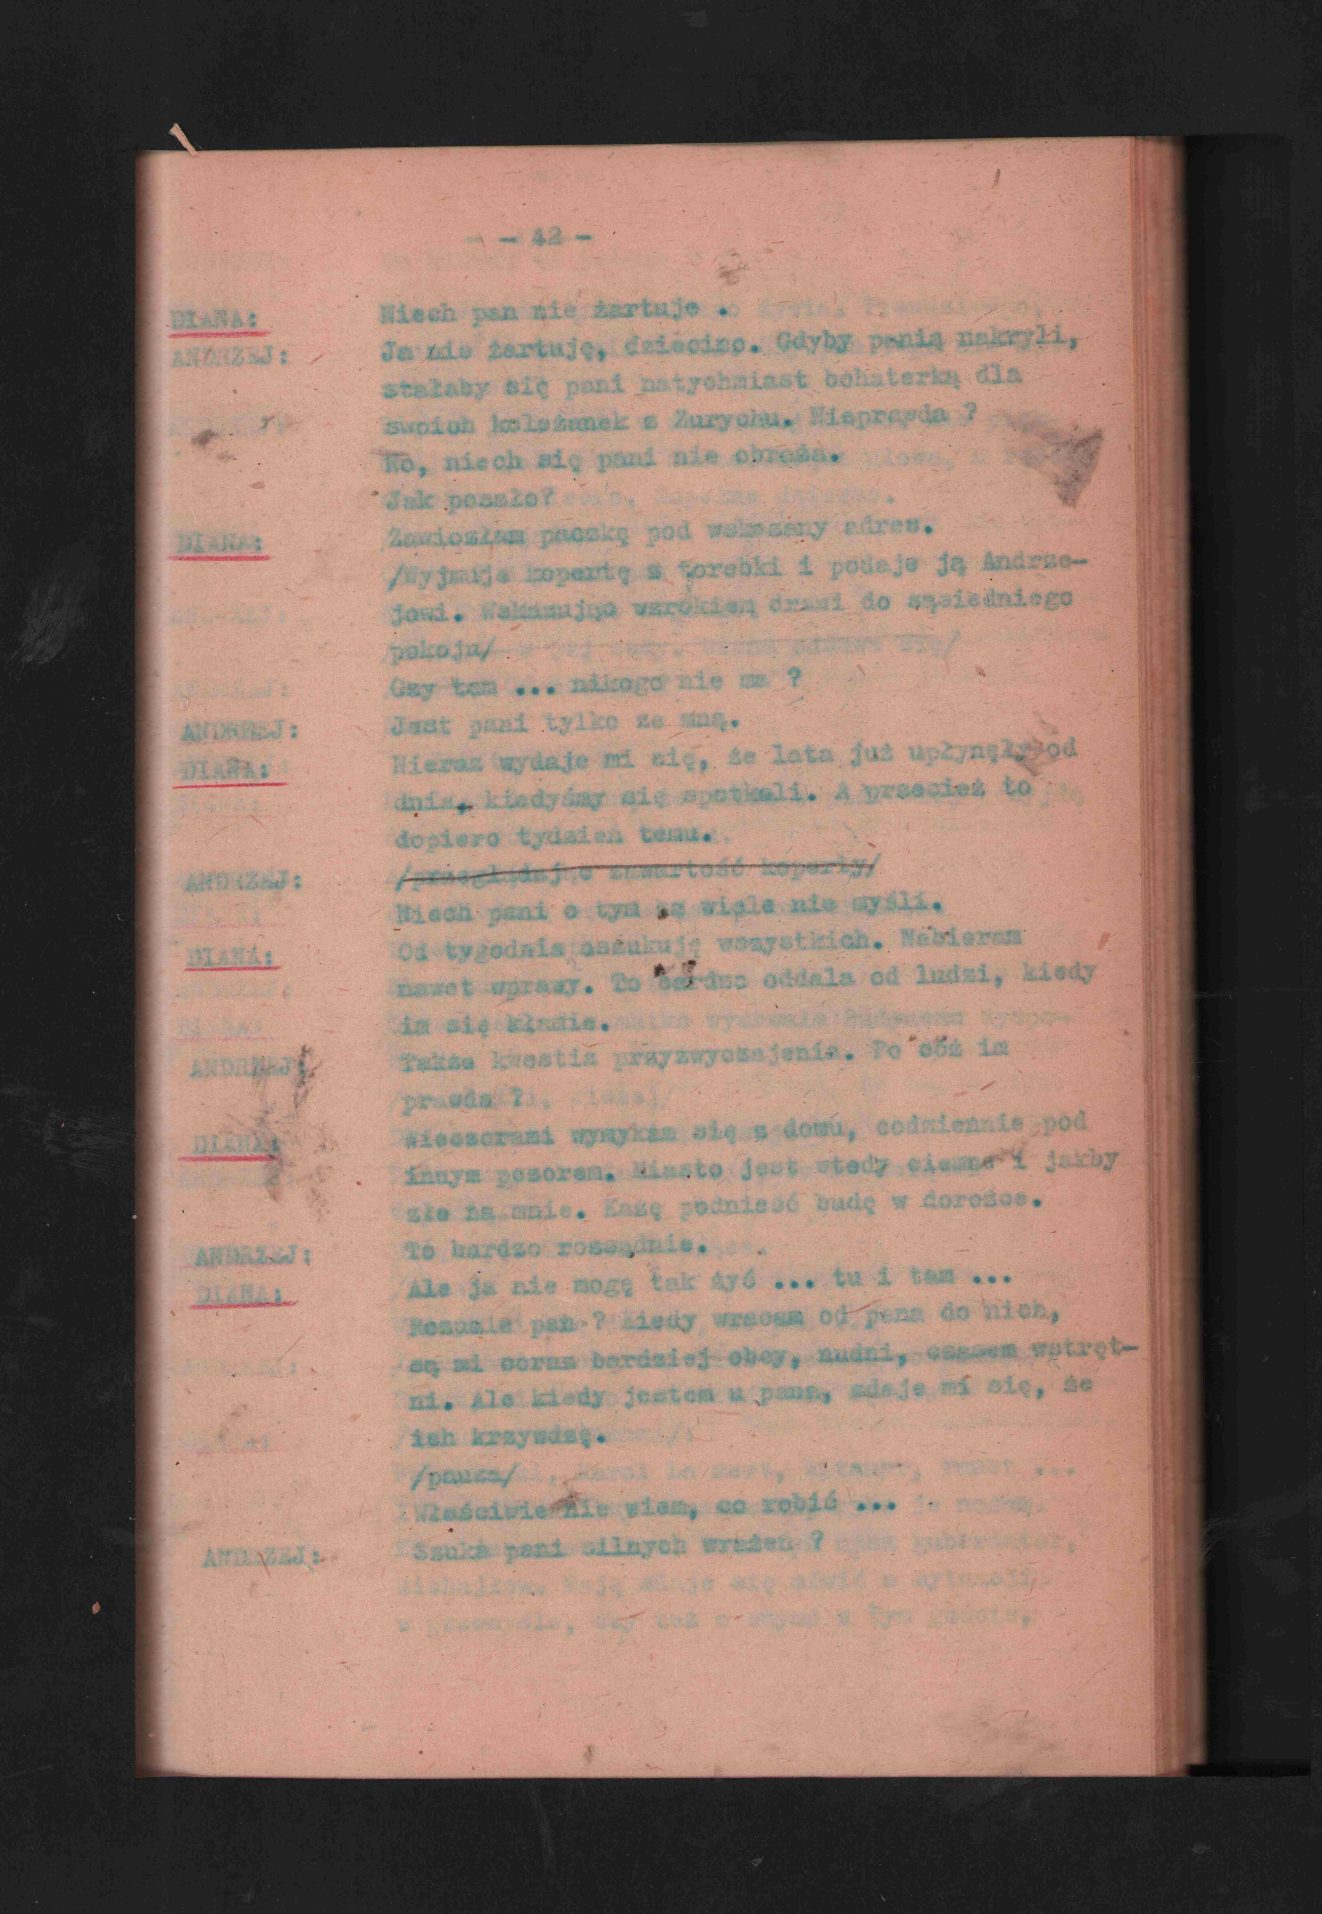 - 42 -
DIANA: Niech pan nie żartuje .
ANDRZEJ: Ja nie żartuję, dziecino. Gdyby panią nakryli,
stałaby się pani natychmiast bohaterką dla
swoich koleżanek z Zurychu. Nieprawda ?
No, niech się pani nie obraża.
Jak poszło?
DIANA: Zawiozłam paczkę pod wskazany adres.
/Wyjmuje kopertę z torebki i podaje ją Andrze-
jowi. Wskazując wzrokiem drzwi do sąsiedniego
pokoju/
Czy tam ... nikogo nie ma ?
ANDRZEJ: Jest pani tylko ze mną.
DIANA: Nieraz wydaje mi się, że lata już upłynęły od
dnia, kiedyśmy się spotkali. A przecież to
dopiero tydzień temu.
ANDRZEJ: /przeglądając zawartość koperty/
Niech pani o tym za wiele nie myśli.
DIANA: Od tygodnia oszukuję wszystkich. Nabieram
nawet wprawy. To bardzo oddala od ludzi, kiedy
im się kłamie.
ANDRZEJ: Także kwestia przyzwyczajenia. Po cóż im
prawda ?
DIANA: Wieczorami wymykam się z domu, codziennie pod
innym pozorem. Miasto jest wtedy ciemne i jakby
złe na mnie. Każę podnieść budę w dorożce.
ANDRZEJ: To bardzo rozsądnie.
DIANA: Ale ja nie mogę tak żyć ... tu i tam ...
Rozumie pan ? Kiedy wracam od pana do nich,
są mi coraz bardziej obcy, nudni, czasem wstręt-
ni. Ale kiedy jestem u pana, zdaje mi się, że
ich krzywdzę.
/pauza/
Właściwie nie wiem, co robić ...
ANDRZEJ: Szuka pani silnych wrażeń ?